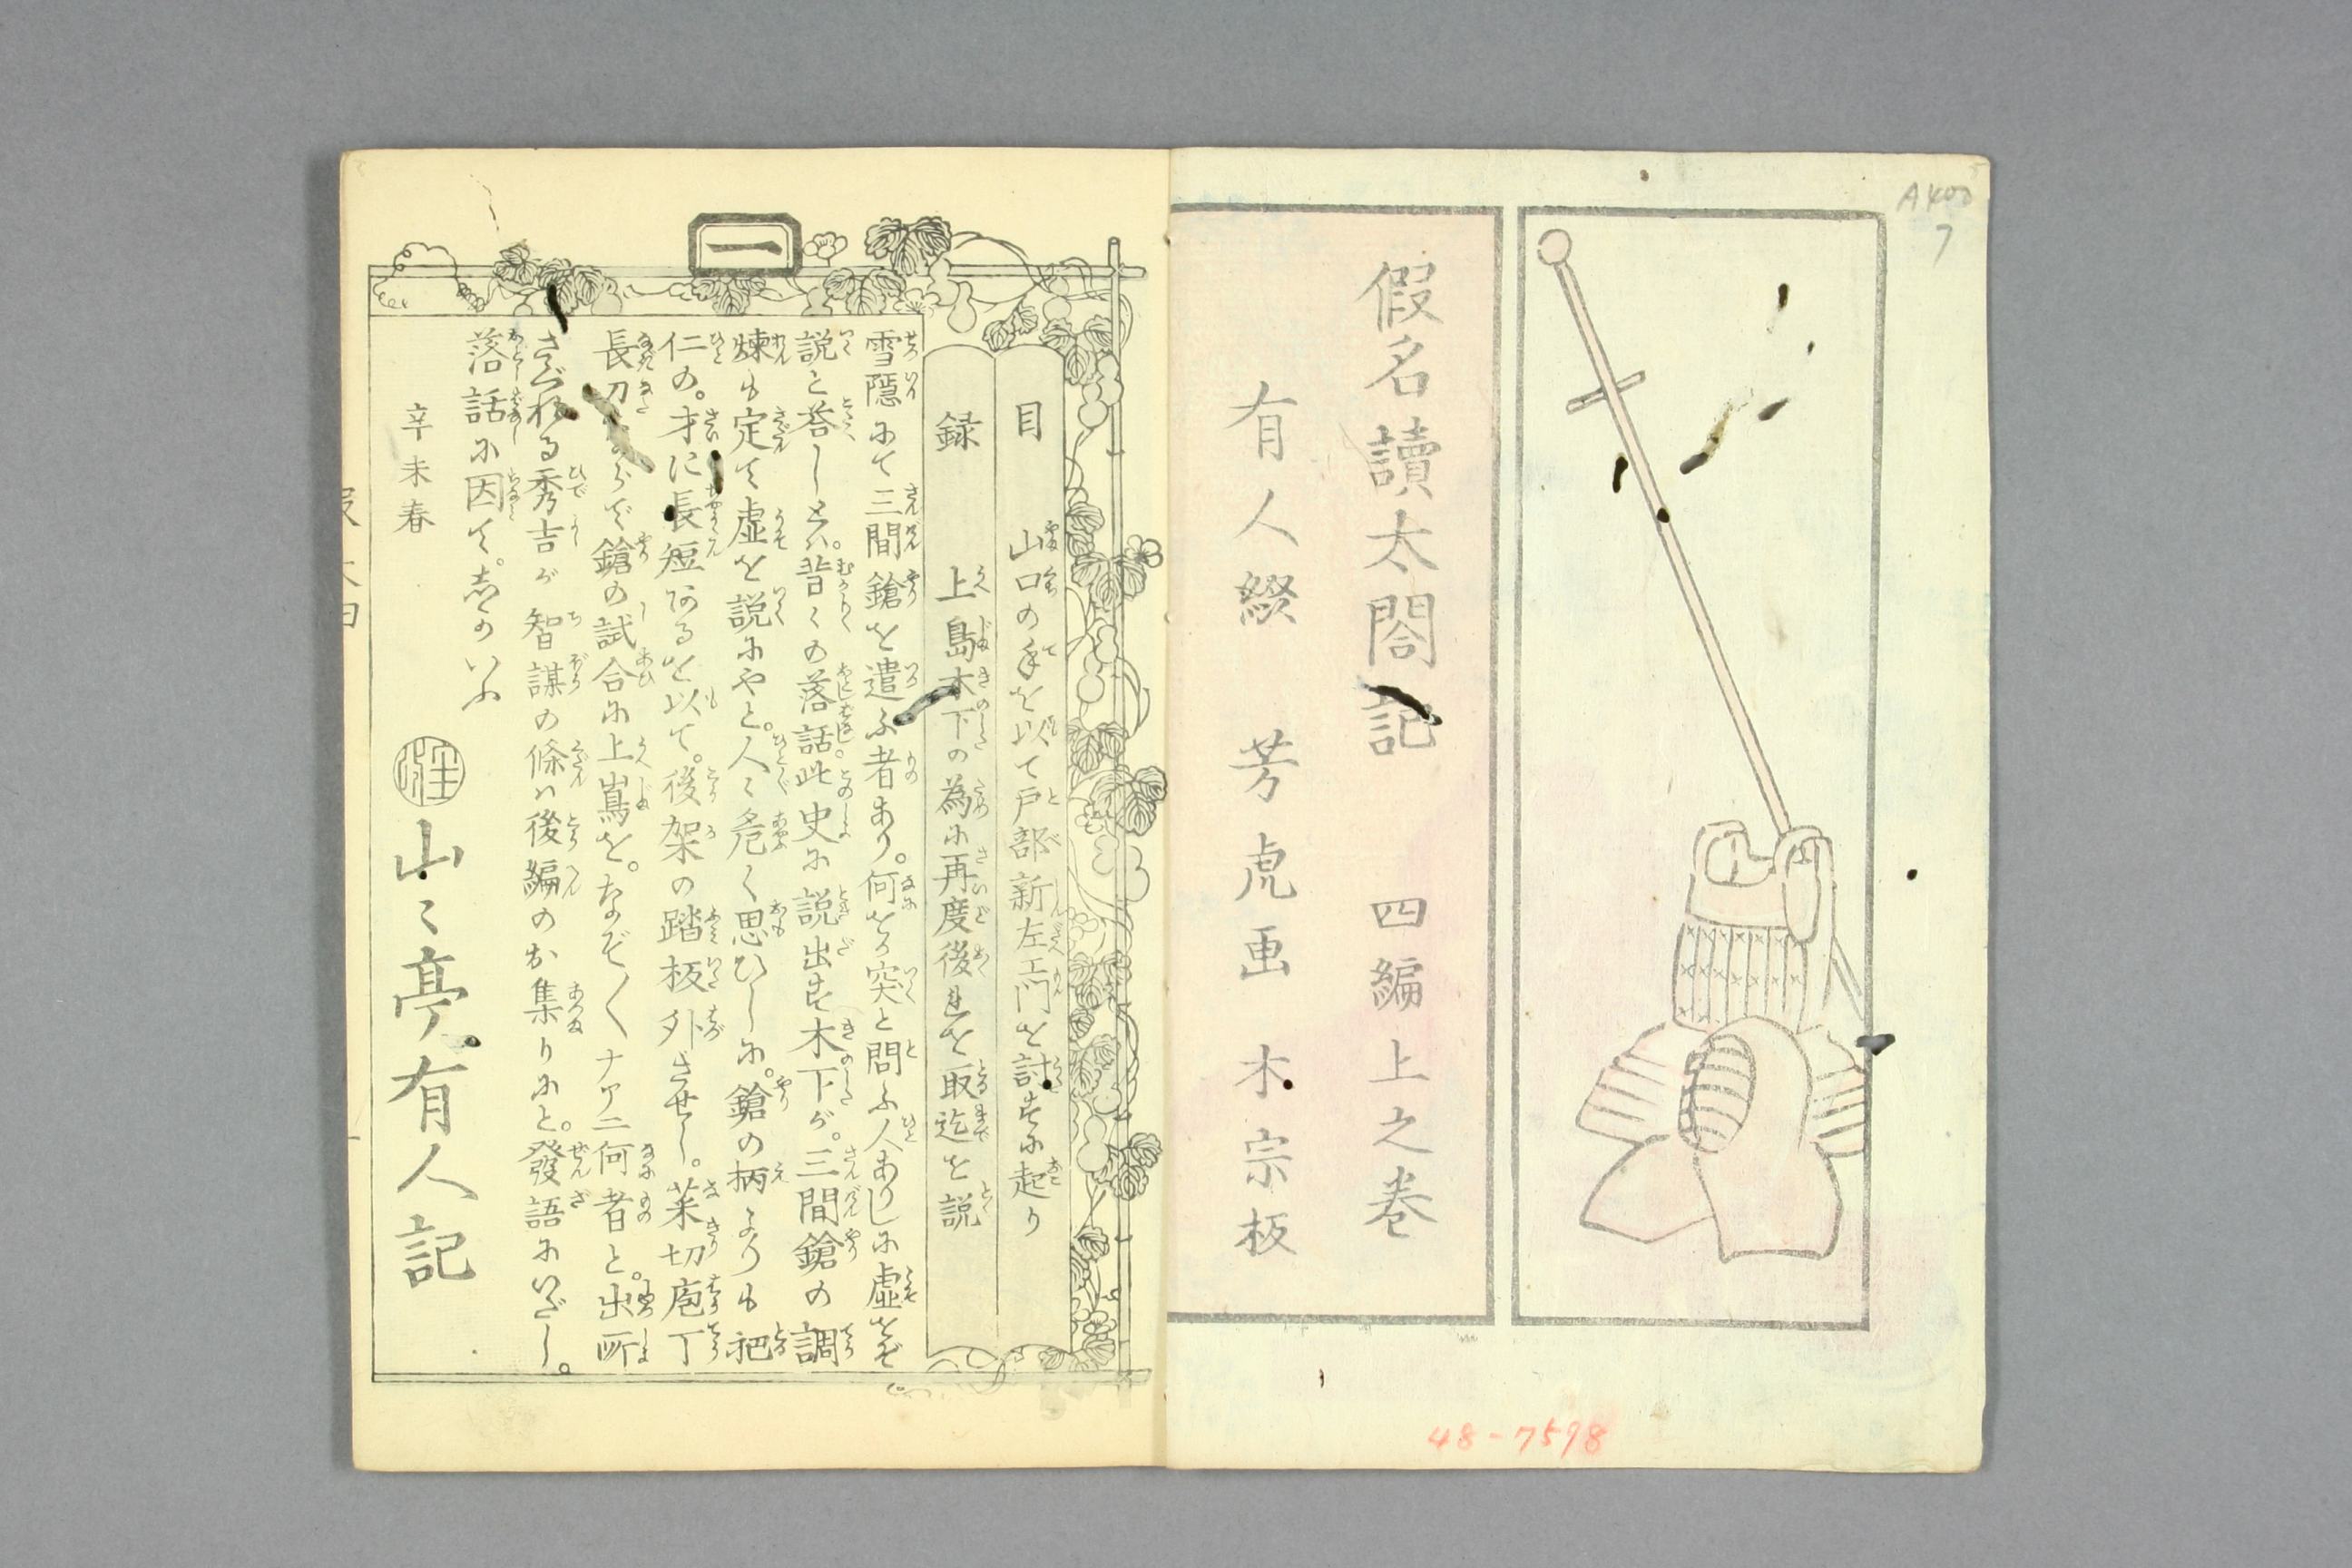 A400
7
假名讀太閤記 四編上之巻
有人綴 芳虎画 木宗板
48-7598
一
目
録
山口の手を以て戸部新左エ門を討すに起り
上島木下の為に再度後れを取迄を説
雪隠にて三間鎗を遣ふ者あり。何をか突と問ふ人ありしに虚をぞ
説と答しとハ。昔々の落話。此史に説出す木下が。三間鎗の調
煉も定て虚を説にやと。人々危く思ひしに。鎗の柄よりも把
仁の。才に長短あるを以て。後架の踏板外させし。菜切庖丁
長刀 鎗の試合に上嶌を。なぞ〱ナアニ何者と。出所
される秀吉が智謀の條ハ後編のお集りにと。發語にいだし。
落話に因て。志かいふ
辛未春
山々亭有人記